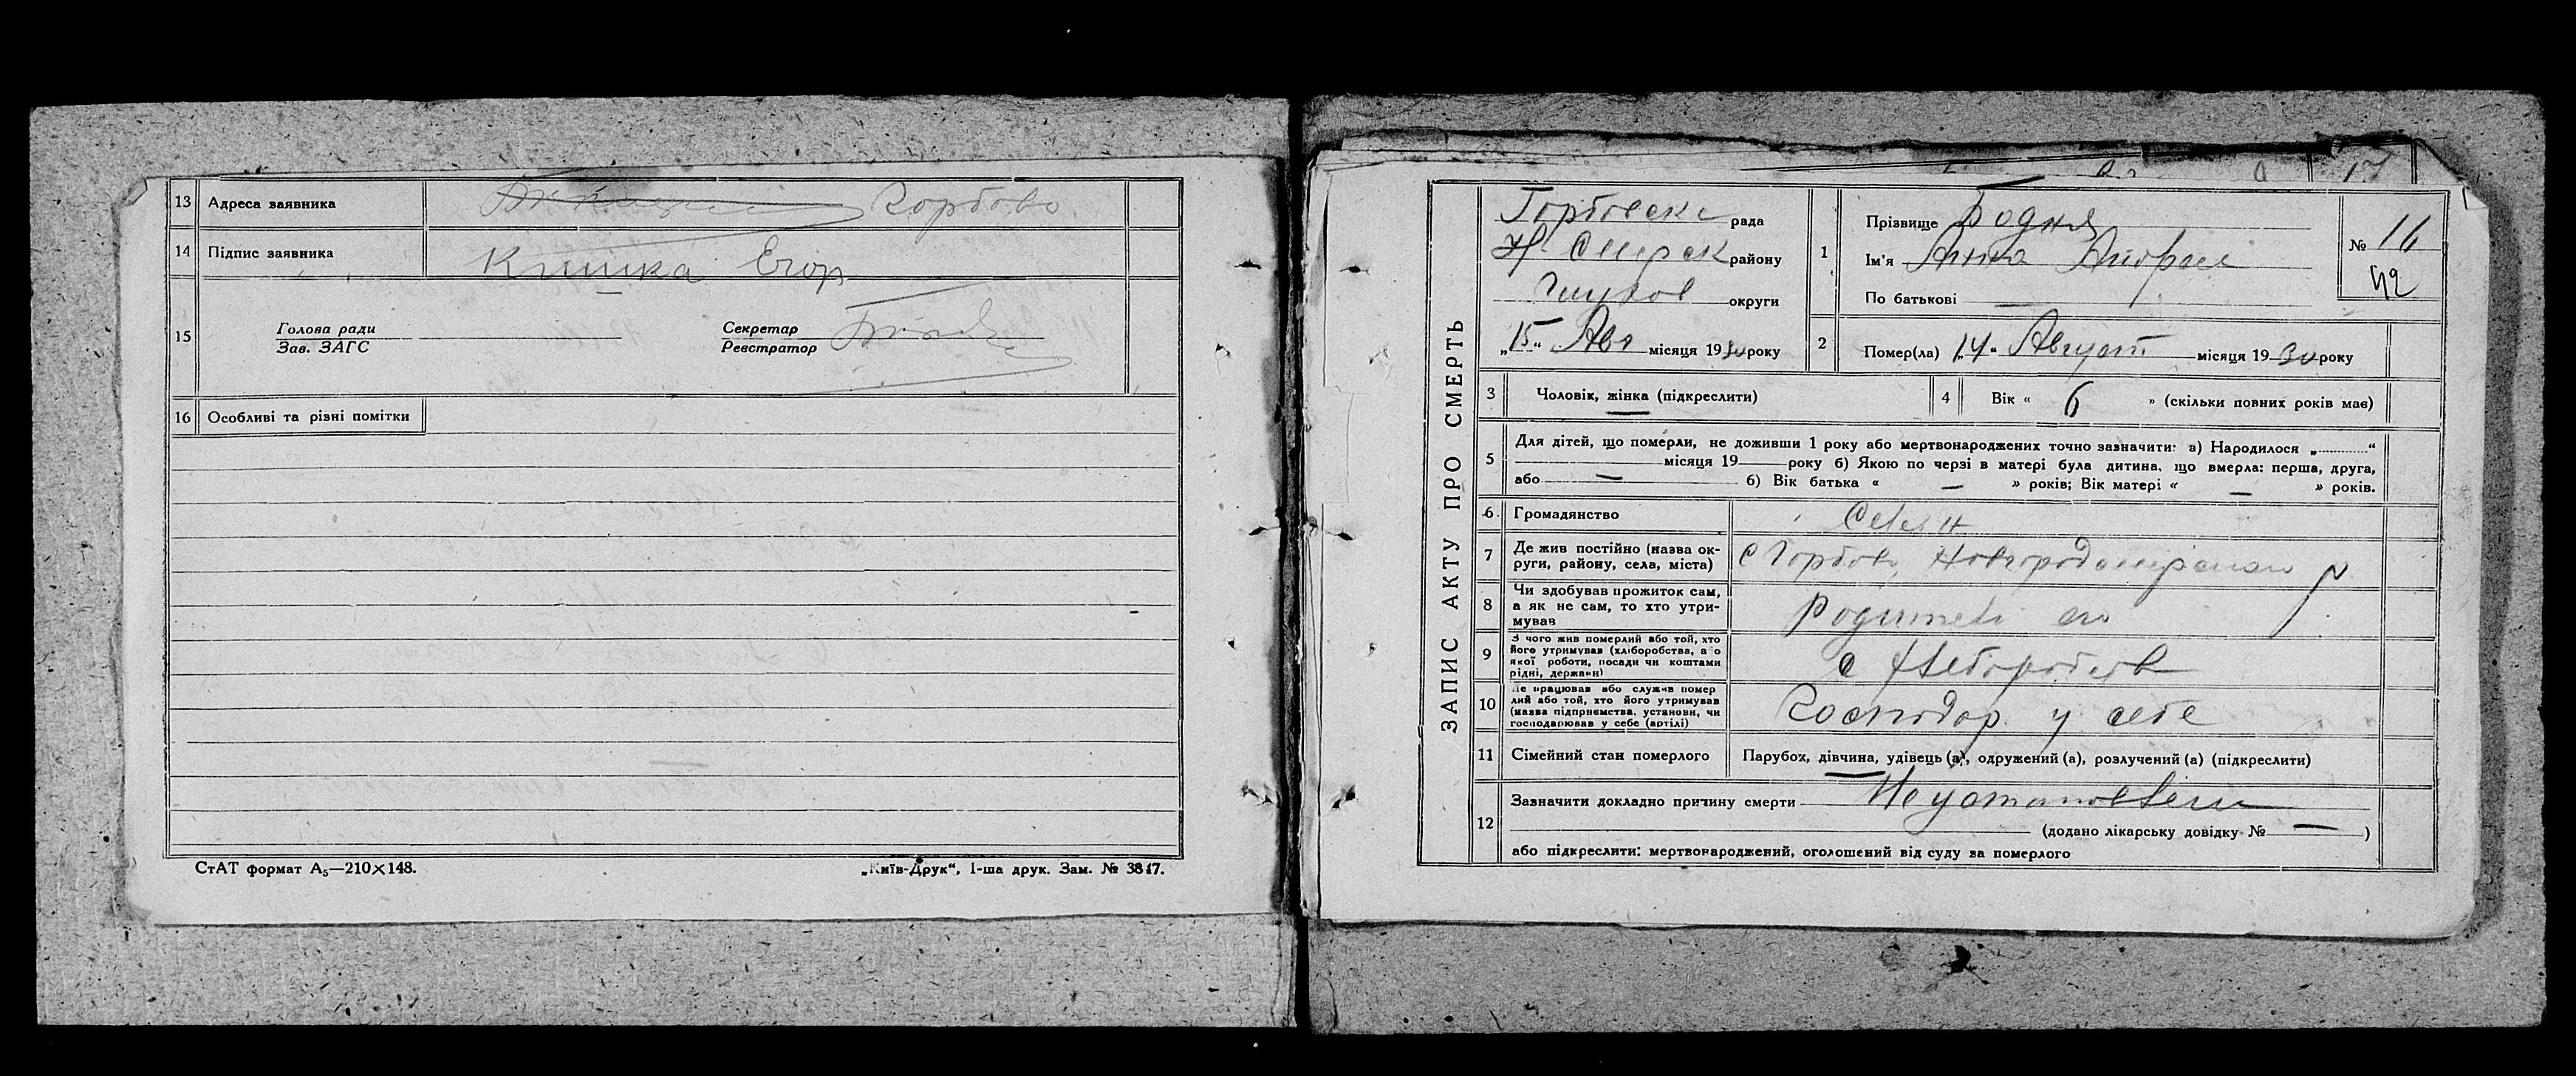 13 Адреса заявника Горбово
14 Підпис заявника Кишка Егор
15 Голова ради
Зав. ЗАГС
Секретар
Реєстратор
16 Особливі та різні помітки
СтАТ формат А5—210×148.
„Київ-Друк“, 1-ша друк. Зам. № 3817.
17
ЗАПИС АКТУ ПРО СМЕРТЬ
Горбовска рада
Н-Сиверск району
Глухов округи
„15“ Авг місяця 1930 року
1 Прізвище Бодня
Ім'я Анна Андрее
По батькові —
№ 16
42
2 Помер(ла) „14“ Август місяця 1930 року
3 Чоловік, жінка (підкреслити)
4 Вік « 6 » (скільки повних років має)
5 Для дітей, що померли, не доживши 1 року або мертвонароджених точно зазначити: а) Народилося „ “
місяця 19 року б) Якою по черзі в матері була дитина, що вмерла: перша, друга,
або — б) Вік батька « — » років; Вік матері « — » років.
6 Громадянство Селян
7 Де жив постійно (назва ок-
руги, району, села, міста) с Горбово, Новгородсиверском р
8 Чи здобував прожиток сам,
а як не сам, то хто утри-
мував Родители его
9 З чого жив померлий або той, хто
його утримував (хліборобства, а о
якої роботи, посади чи коштами
рідні, держави) с Хлеборобств
10 Де працював або служив помер
лий або той, хто його утримував
(назва підприємства, установи, чи
господарював у себе (артілі) Господар у себе
11 Сімейний стан померлого Парубок, дівчина, удівець (а), одружений (а), розлучений (а) (підкреслити)
12 Зазначити докладно причину смерти Неустановлен
(додано лікарську довідку № — )
або підкреслити: мертвонароджений, оголошений від суду за померлого